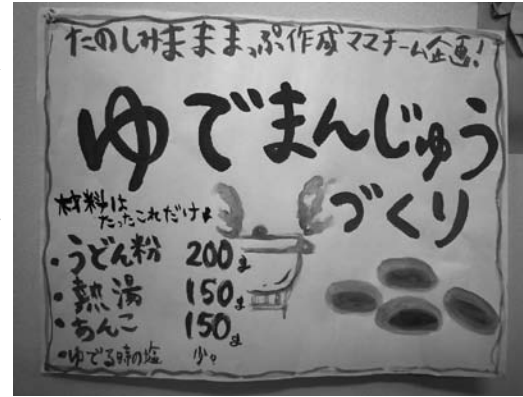 たのしみままままっぷ作成ママチーム企画!
ゆでまんじゅう
づくり
材料は
たったこれだけ♪
・うどん粉 200g
・熱湯 150g
・あんこ 150g
・ゆでる時の塩 少々